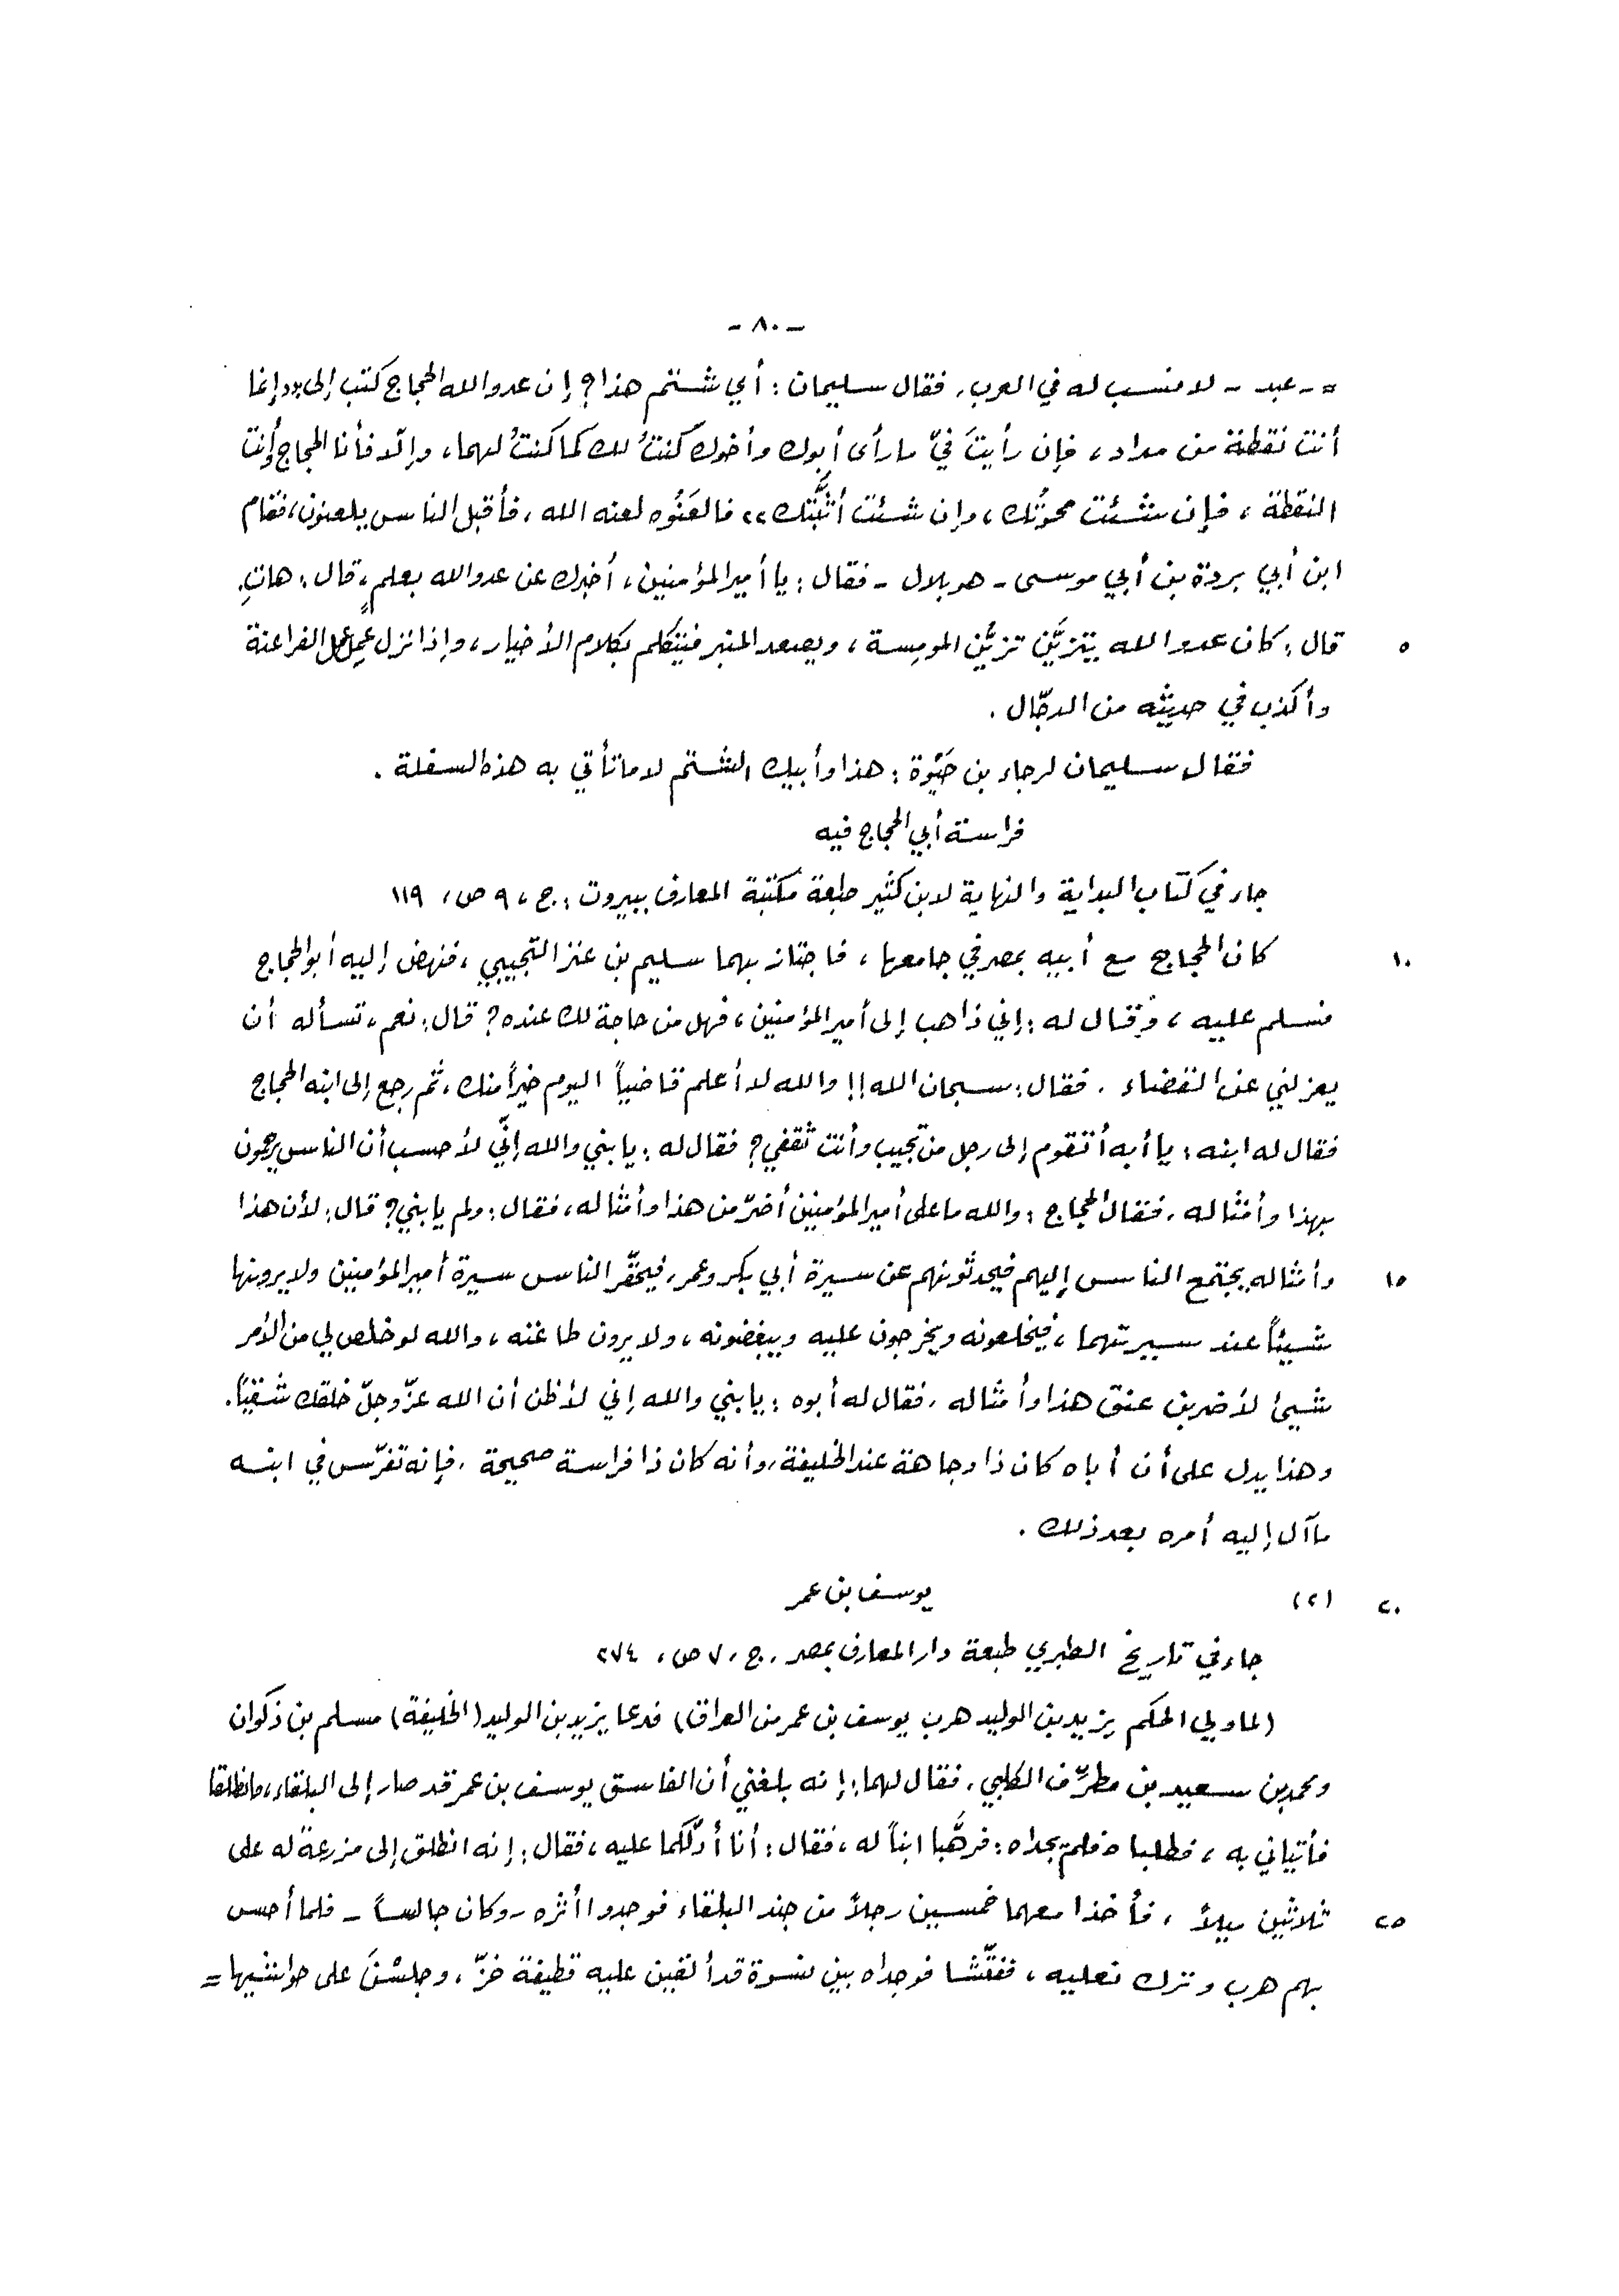 - ٨٠ -
= - عبد - لا منسب له في العرب، فقال سليمان: أي شتم هذا؟ إن عدو الله الحجاج كتب إلي «إنما
أنت نقطة من مداد، فإن رأيتَ فيّ ما رأى أبوك وأخوك كنتُ لك كما كنتُ لهما، وإلّا فأنا الحجاج وأنت
النقطة، فإن شئت محوتُك، وإن شئت أثبَّتك» فالعَنُوه لعنه الله، فأقبل الناس يلعنونه، فقام
ابن أبي بردة بن أبي موسى - هو بلال - فقال: يا أمير المؤمنين، أخبرك عن عدو الله بعلمٍ، قال: هاتِ.
٥ قال: كان عدو الله يتزيَّن تزيُّن المومِسة، ويصعد المنبر فيتكلم بكلام الأخيار، وإذا نزل عمِل عمل الفراعنة
وأكذب في حديثه من الدجّال.
فقال سليمان لرجاء بن حَيْوة: هذا وأبيك الشتم لا ما تأتي به هذه السفلة.
فراسة أبي الحجاج فيه
جاء في كتاب البداية والنهاية لابن كثير طبعة مكتبة المعارف ببيروت: ج، ٩ ص، ١١٩
١٠ كان الحجاج مع أبيه بمصر في جامعها، فاجتاز بهما سليم بن عنز التجيبي، فنهض إليه أبو الحجاج
فسلم عليه، وقال له: إني ذاهب إلى أمير المؤمنين، فهل من حاجة لك عنده؟ قال: نعم، تسأله أن
يعزلني عن القضاء. فقال: سبحان الله!! والله لا أعلم قاضياً اليوم خيراً منك، ثم رجع إلى ابنه الحجاج
فقال له ابنه: يا أبه أتقوم إلى رجل من تجيب وأنت ثقفي؟ فقال له: يا بني والله إنّي لأحسب أن الناس يرحمون
بهذا وأمثاله، فقال الحجاج: والله ما على أمير المؤمنين أضرّ من هذا وأمثاله، فقال: ولم يا بني؟ قال: لأن هذا
١٥ وأمثاله يجتمع الناس إليهم فيحدثونهم عن سيرة أبي بكر وعمر، فيحقّر الناس سيرة أمير المؤمنين ولا يرونها
شيئاً عند سيرتهما، فيخلعونه ويخرجون عليه ويبغضونه، ولا يرون طاعته، والله لو خلص لي من الأمر
شيئ لأضربن عنق هذا وأمثاله، فقال له أبوه: يا بني والله إني لأظن أن الله عزّ وجلّ خلقك شقيّاً.
وهذا يدل على أن أباه كان ذا وجاهة عند الخليفة، وأنه كان ذا فراسة صحيحة، فإنه تفرّس في ابنه
ما آل إليه أمره بعد ذلك.
٢٠ (٢) يوسف بن عمر
جاء في تاريخ الطبري طبعة دار المعارف بمصر، ج، ٧ ص، ٢٧٤
(لما ولي الحكم يزيد بن الوليد هرب يوسف بن عمر من العراق) فدعا يزيد بن الوليد (الخليفة) مسلم بن ذكوان
ومحمد بن سعيد بن مطرِّف الكلبي، فقال لهما: إنه بلغني أن الفاسق يوسف بن عمر قد صار إلى البلقاء، فانطلقا
فأتياني به، فطلباه فلم يجداه: فرهَّبا ابناً له، فقال: أنا أدلّكما عليه، فقال: إنه انطلق إلى مزرعةً له على
٢٥ ثلاثين ميلاً، فأخذا معهما خمسين رجلاً من جند البلقاء فوجدوا أثره - وكان جالساً - فلما أحس
بهم هرب وترك نعليه، ففتّشا فوجداه بين نسوة قد ألقين عليه قطيفة خزّ، وجلسْنَ على حواشيها =